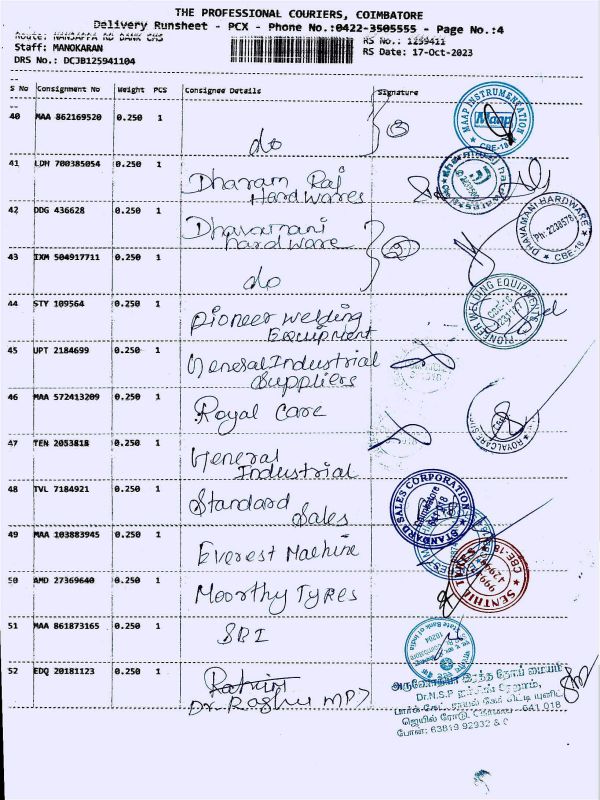 THE PROFESSIONAL COURIERS, COIMBATORE
Delivery Runsheet - PCX - Phone No.:0422-3505555 - Page No.:4
Route: NANJAPPA RD BANK CHS
RS No.: 1259411
Staff: MANOKARAN
RS Date: 17-Oct-2023
DRS No.: DCJB125941104
S No Consignment No Weight PCS Consignee Details Signature
40 MAA 862169520 0.250 1 do
MAAP INSTRUMENTATION
Maap
CBE-18
41 LDH 700385054 0.250 1 Dharam Raj
Hardwares
42 DDG 436628 0.250 1 Dhavamani
hardware
DHAVAMANI HARDWARE
Ph: 2238578
CBE-18
43 IXM 504917711 0.250 1 do
44 STY 109564 0.250 1 Pioneer Welding
Equipment
PIONEER WELDING EQUIPMENTS
45 UPT 2184699 0.250 1 General Industrial
Suppliers
46 MAA 572413209 0.250 1 Royal Care
47 TEN 2053818 0.250 1 General
Industrial
48 TVL 7184921 0.250 1 Standard
Sales
STANDARD SALES CORPORATION
Coimbatore
49 MAA 103883945 0.250 1 Everest Machine
50 AMD 27369640 0.250 1 Moorthy Tyres
SENTHIL
CBE-18
51 MAA 861873165 0.250 1 SBI
State Bank of India
52 EDQ 20181123 0.250 1
Dr. Raghu
Dr.N.S.P
641 018